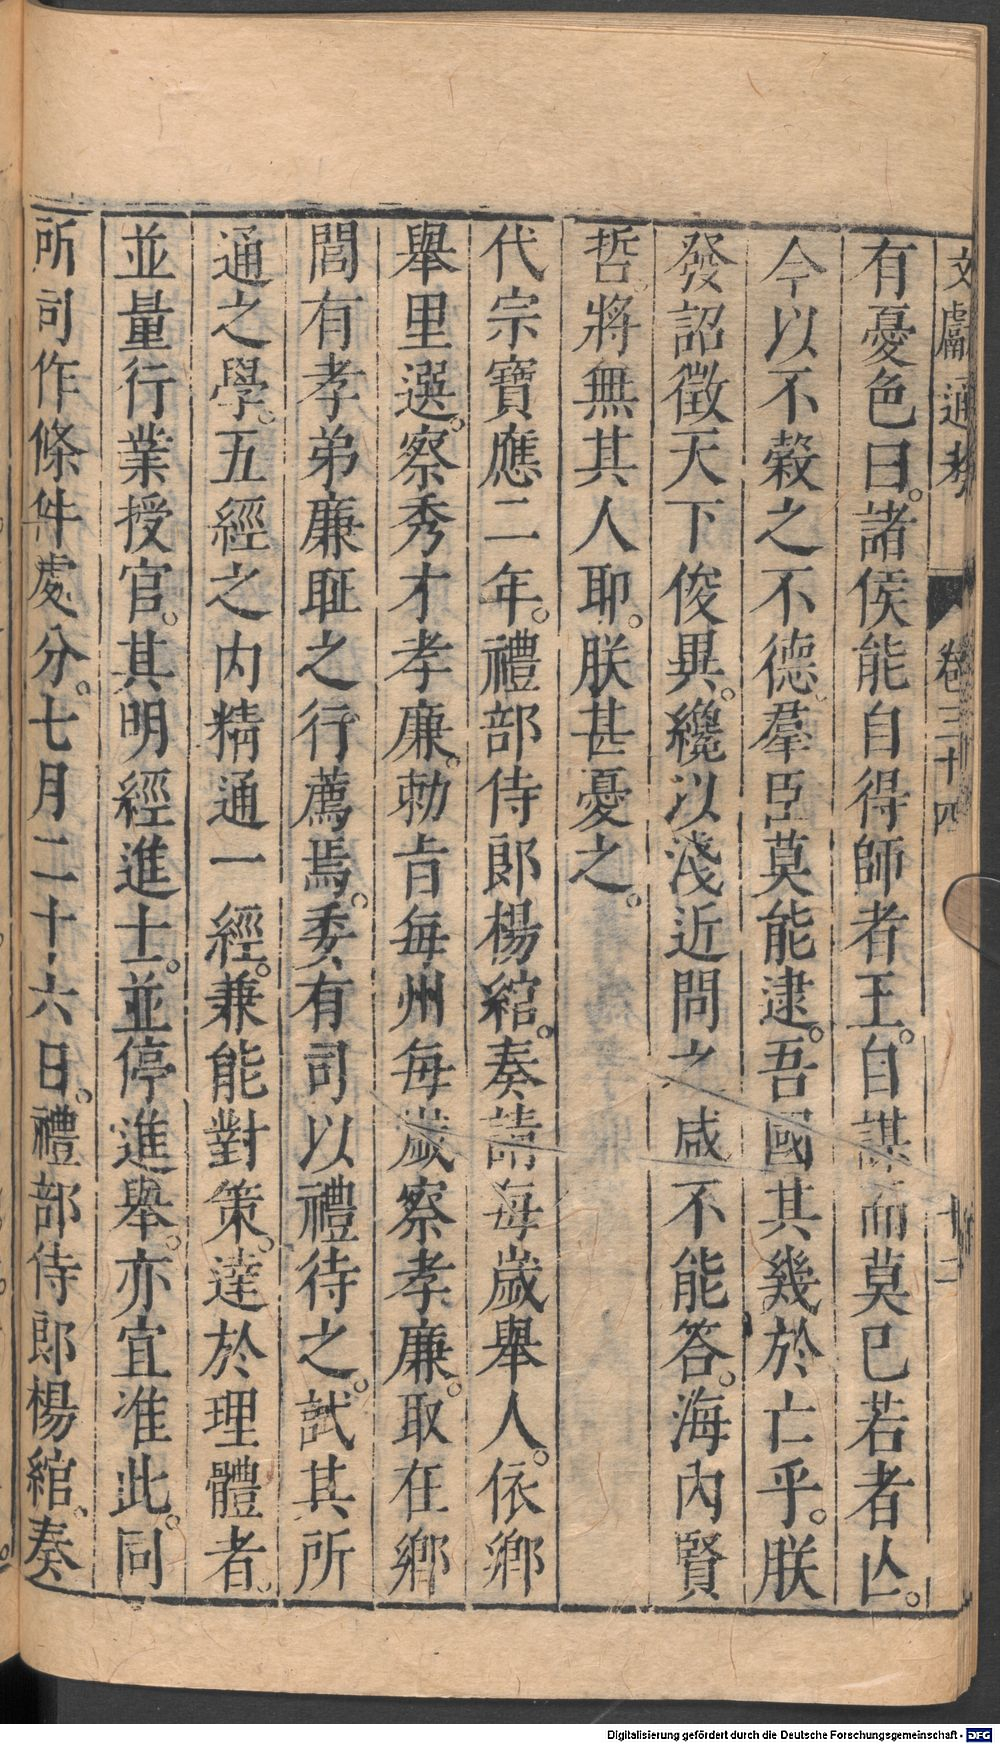 文獻通考 卷三十四 十二
有憂色曰。諸侯能自得師者王。自謀而莫已若者亾。
今以不穀之不德。羣臣莫能逮。吾國其幾於亡乎。朕
發詔徵天下俊異。纔以淺近問之咸不能答。海內賢
哲。將無其人耶。朕甚憂之。
代宗寶應二年。禮部侍郎楊綰。奏請每歲舉人。依鄉
舉里選。察秀才孝廉。勅旨每州每歲察孝廉。取在鄉
閭有孝弟廉耻之行薦焉。委有司以禮待之。試其所
通之學。五經之内精通一經。兼能對策。達於理體者。
並量行業授官。其明經進士。並停進舉。亦宜准此。同
所司作條件處分。七月二十六日。禮部侍郎楊綰。奏
Digitalisierung gefördert durch die Deutsche Forschungsgemeinschaft - DFG